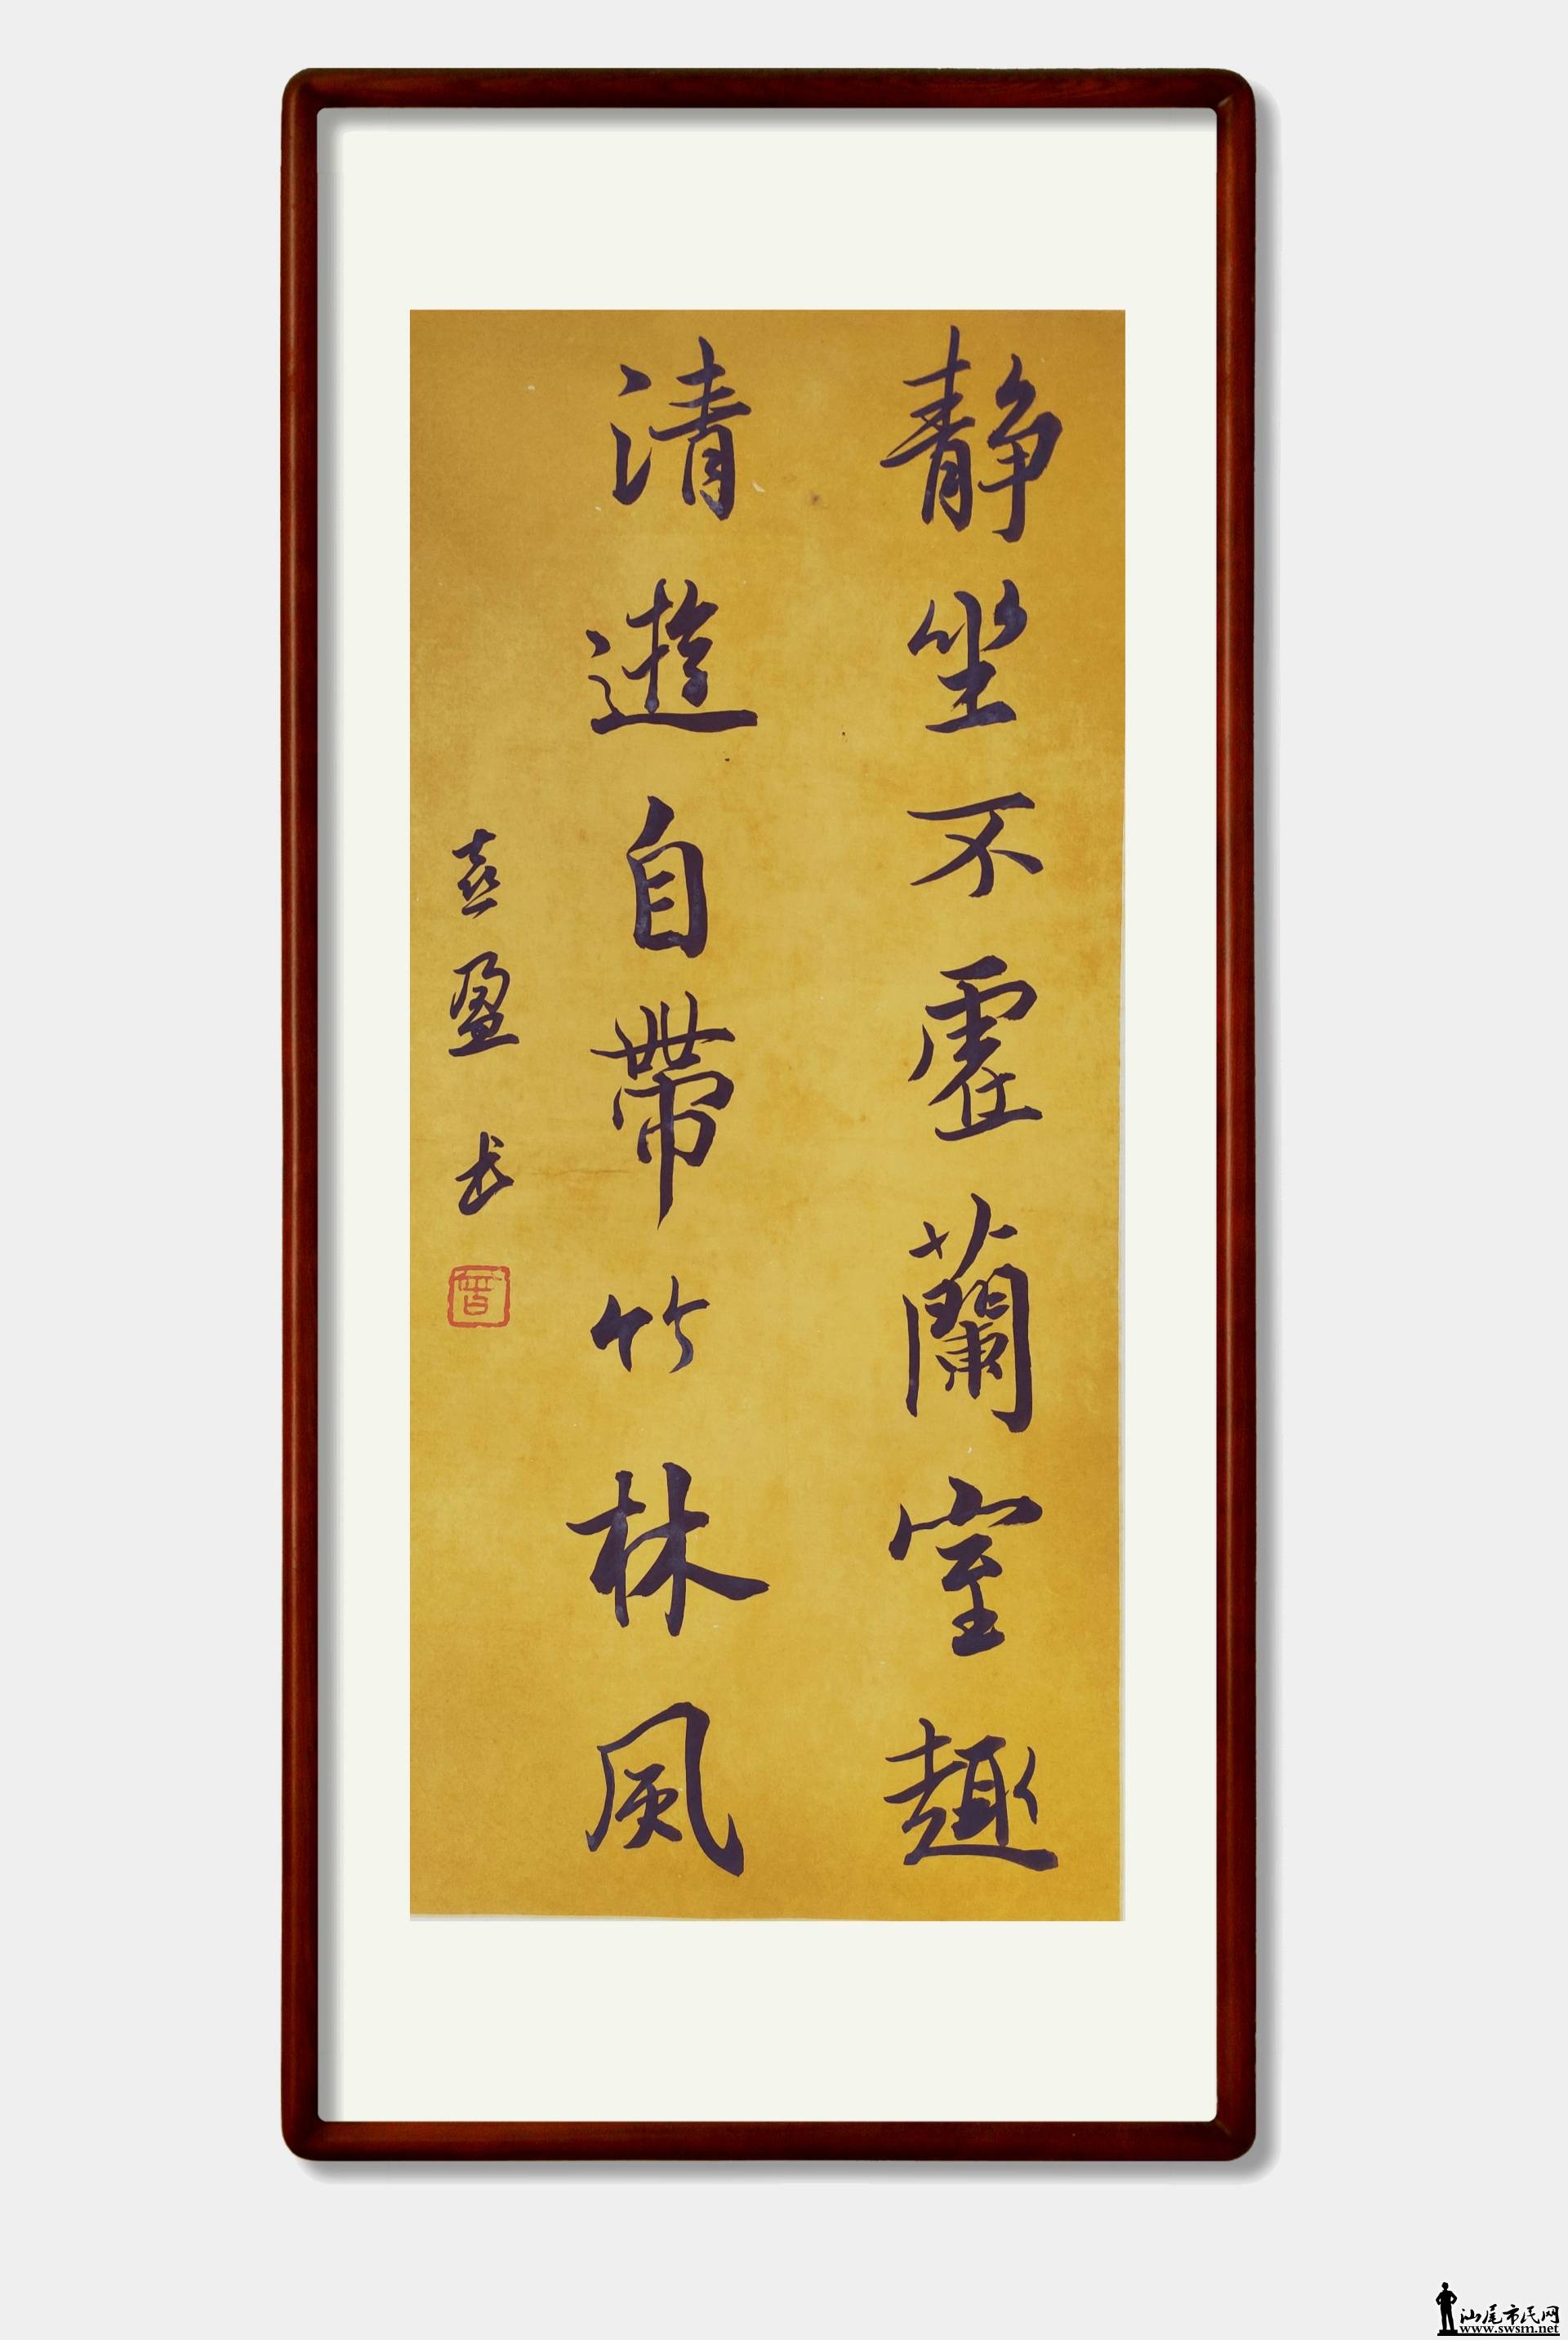 静坐不虛蘭室趣
清遊自帶竹林風
喜盈书
曾
汕尾市民网
www.swsm.net